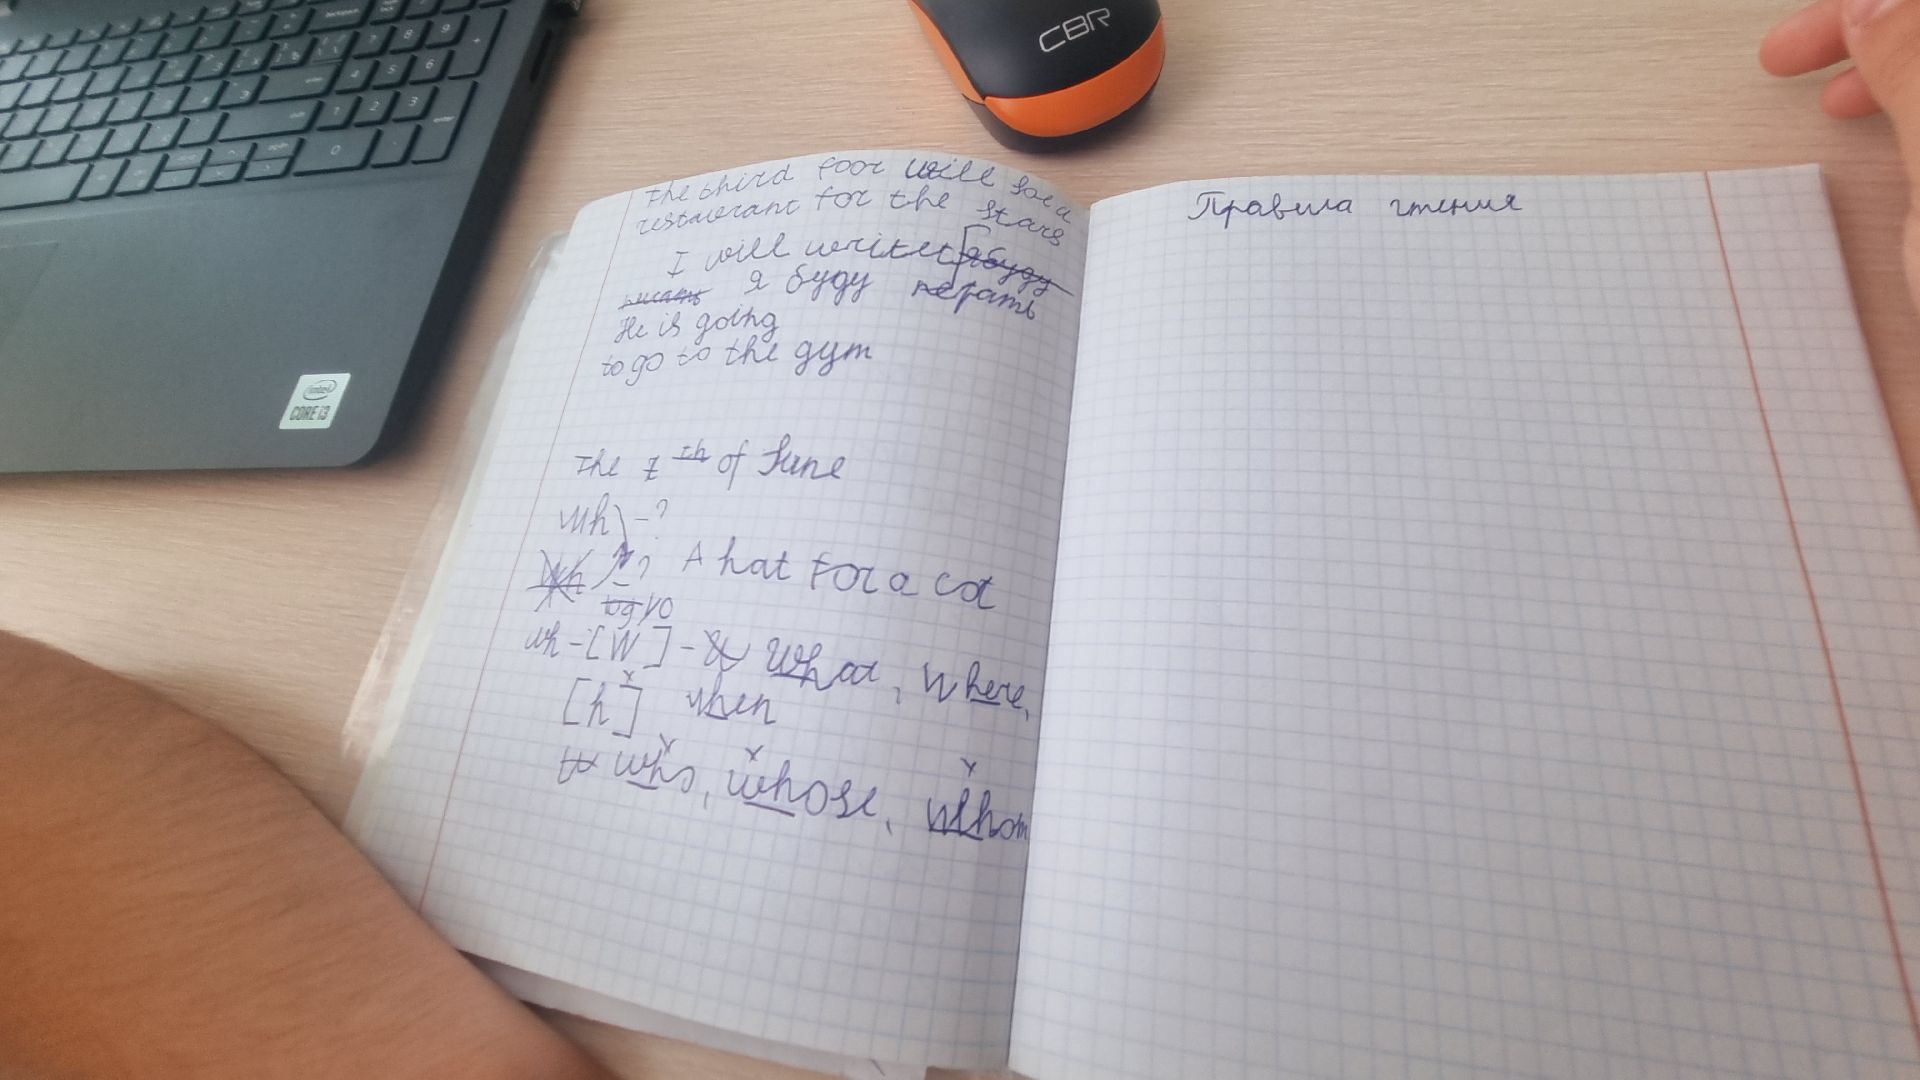 CBR
intel
CORE i3
the third foor will be a
restaurant for the stars
I will writet я буду
писать я буду играть
He is going
to go to the gym
The 7th of June
wh -?
wh -? A hat for a cat
wh - [W] - What, Where,
[h] when
who, whose, whom
Правила чтения